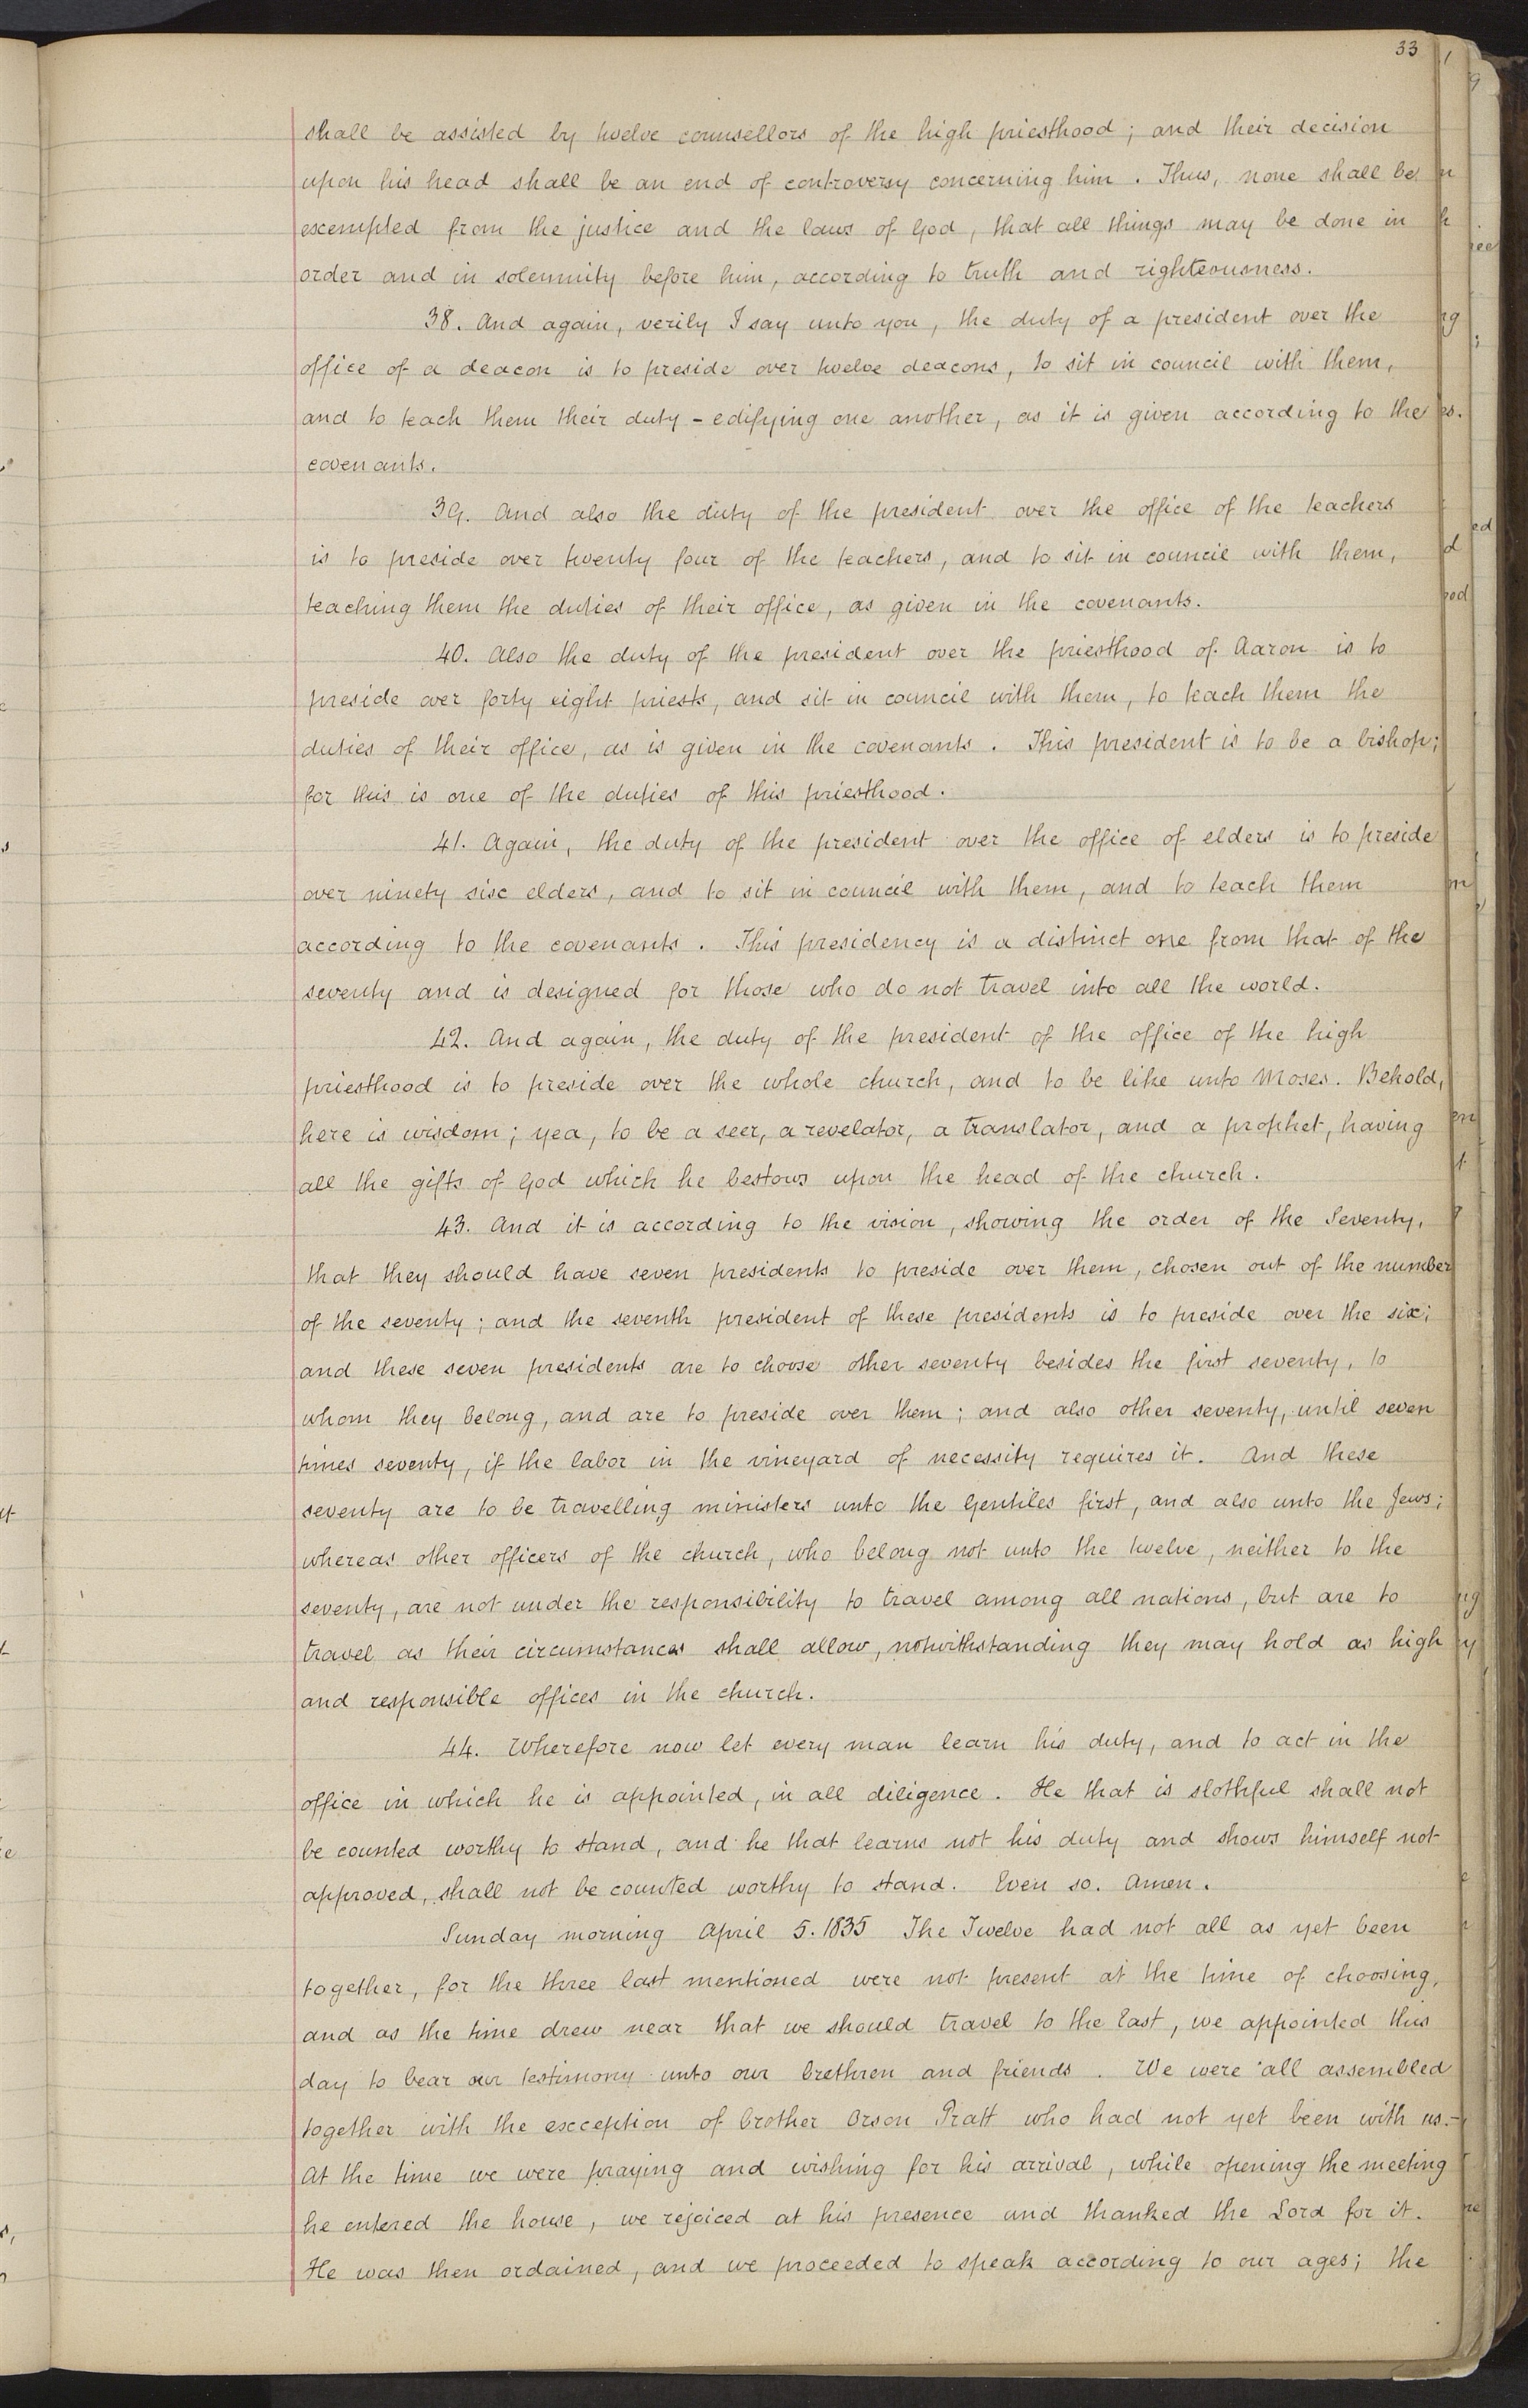 33
shall be assisted by twelve counsellors of the high priesthood; and their decision
upon his head shall be an end of controversy concerning him. Thus, none shall be
exempted from the justice and the laws of God, that all things may be done in
order and in solemnity before him, according to truth and righteousness.
38. And again, verily I say unto you, the duty of a president over the
office of a deacon is to preside over twelve deacons, to sit in council with them,
and to teach them their duty - edifying one another, as it is given according to the
covenants.
39. And also the duty of the president over the office of the teachers
is to preside over twenty four of the teachers, and to sit in council with them,
teaching them the duties of their office, as given in the covenants.
40. Also the duty of the president over the priesthood of Aaron is to
preside over forty eight priests, and sit in council with them, to teach them the
duties of their office, as is given in the covenants. This president is to be a bishop;
for this is one of the duties of this priesthood.
41. Again, the duty of the president over the office of elders is to preside
over ninety six elders, and to sit in council with them, and to teach them
according to the covenants. This presidency is a distinct one from that of the
seventy and is designed for those who do not travel into all the world.
42. And again, the duty of the president of the office of the high
priesthood is to preside over the whole church, and to be like unto Moses. Behold,
here is wisdom; yea, to be a seer, a revelator, a translator, and a prophet, having
all the gifts of God which he bestows upon the head of the church.
43. And it is according to the vision, showing the order of the Seventy,
that they should have seven presidents to preside over them, chosen out of the number
of the seventy; and the seventh president of these presidents is to preside over the six;
and these seven presidents are to choose other seventy besides the first seventy, to
whom they belong, and are to preside over them; and also other seventy, until seven
times seventy, if the labor in the vineyard of necessity requires it. And these
seventy are to be travelling ministers unto the Gentiles first, and also unto the Jews;
whereas other officers of the church, who belong not unto the twelve, neither to the
seventy, are not under the responsibility to travel among all nations, but are to
travel as their circumstances shall allow, notwithstanding they may hold as high
and responsible offices in the church.
44. Wherefore now let every man learn his duty, and to act in the
office in which he is appointed, in all diligence. He that is slothful shall not
be counted worthy to stand, and he that learns not his duty and shows himself not
approved, shall not be counted worthy to stand. Even so. Amen.
Sunday morning April 5. 1835 The Twelve had not all as yet been
together, for the three last mentioned were not present at the time of choosing,
and as the time drew near that we should travel to the East, we appointed this
day to bear our testimony unto our brethren and friends. We were all assembled
together with the exception of brother Orson Pratt who had not yet been with us.-
At the time we were praying and wishing for his arrival, while opening the meeting
he entered the house, we rejoiced at his presence and thanked the Lord for it.
He was then ordained, and we proceeded to speak according to our ages; the